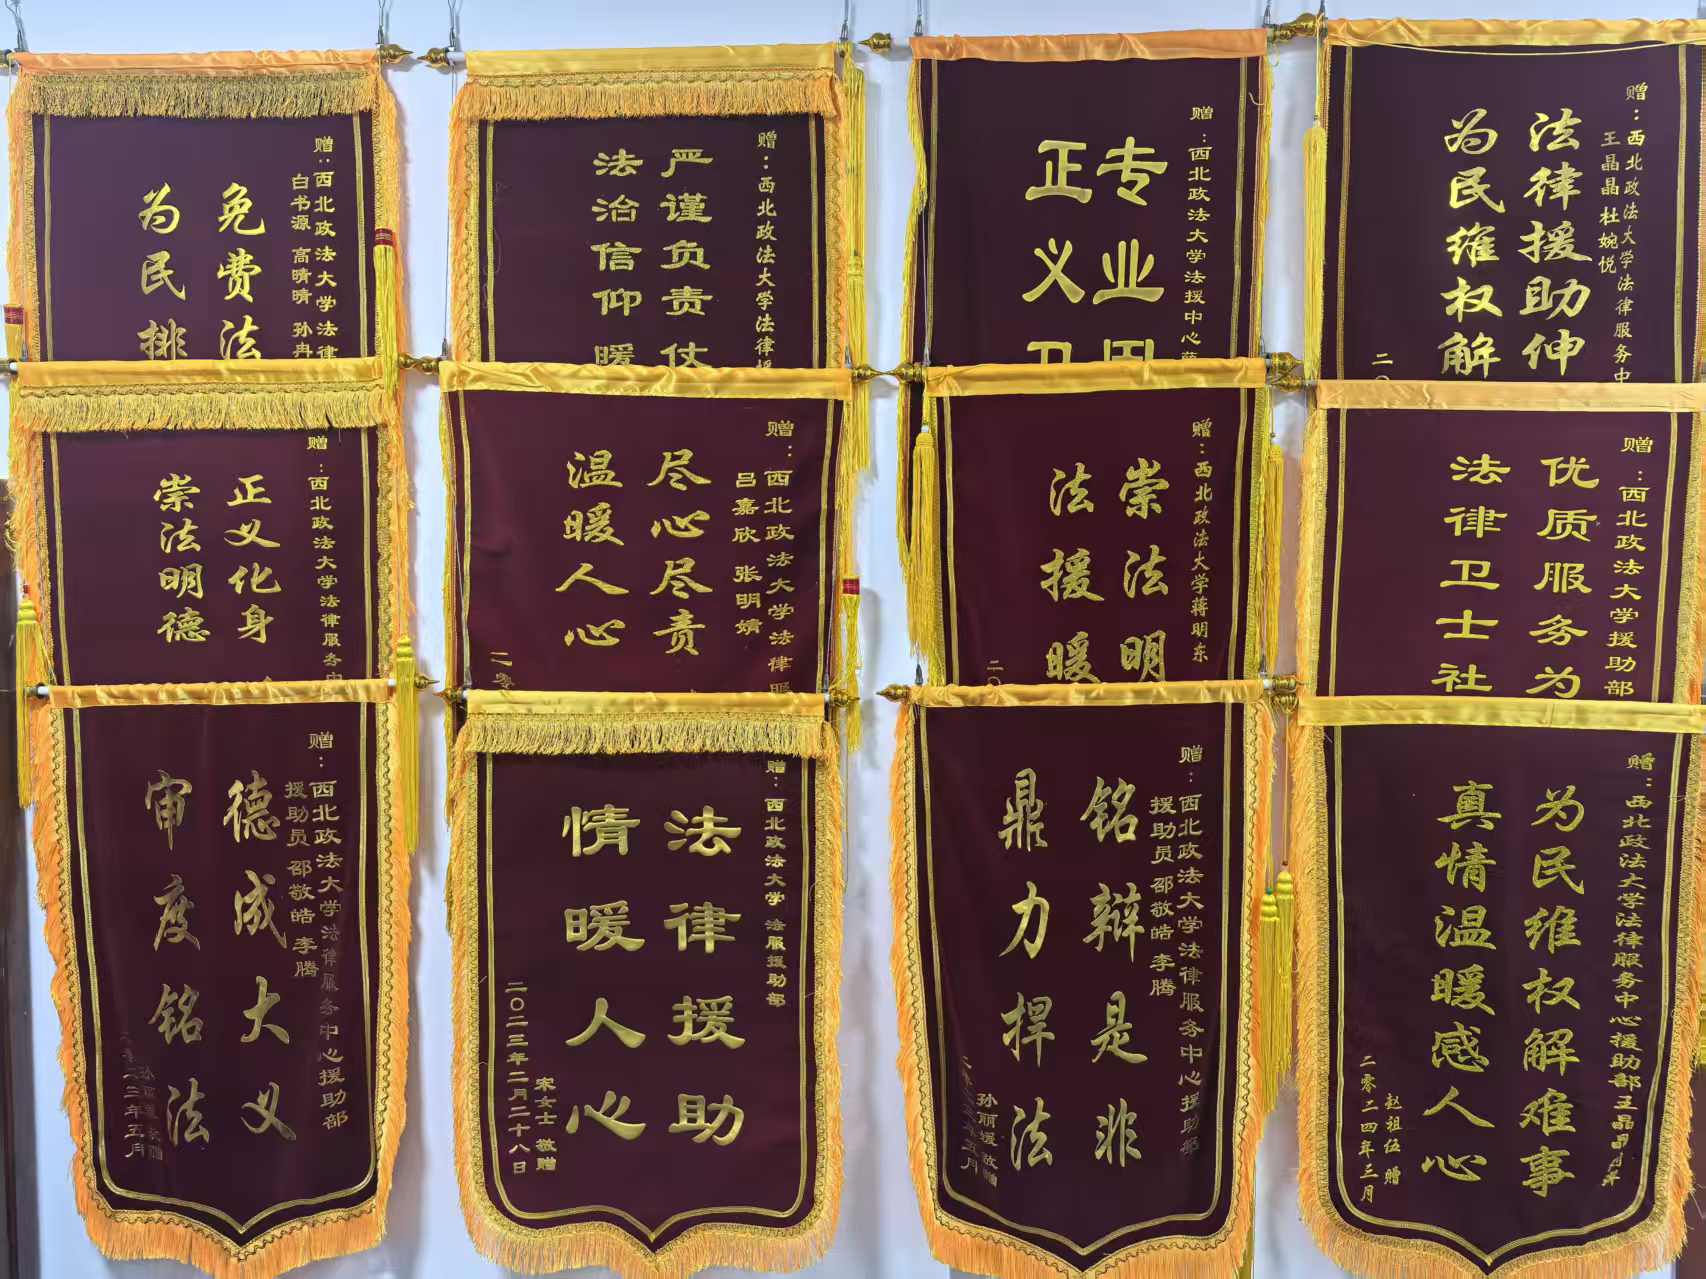 赠：西北政法大学法律
白书源 高晴晴 孙冉
免费法
为民排
赠：西北政法大学法律援
严谨负责仗
法治信仰暖
赠：西北政法大学法援中心
专业
正义卫
赠：西北政法大学法律服务中
王晶晶 杜婉悦
法律援助伸
为民维权解
二
赠：西北政法大学法律服务中
正义化身
崇法明德
赠：西北政法大学法律服
吕嘉欣 张明婧
尽心尽责
温暖人心
二零
赠：西北政法大学蒋明东
崇法明
法援暖
二〇
赠：西北政法大学援助部
优质服务为
法律卫士社
赠：西北政法大学法律服务中心援助部
援助员 邵敬皓 李腾
德成大义
审度铭法
三年五月
赠：西北政法大学 法服援助部
法律援助
情暖人心
宋女士 敬赠
二〇二三年二月二十八日
赠：西北政法大学法律服务中心援助部
援助员 邵敬皓 李腾
铭辩是非
鼎力捍法
孙丽媛 敬赠
五月
赠：西北政法大学法律服务中心援助部王晶晶
为民维权解难事
真情温暖感人心
赵祖伍 赠
二零二四年三月